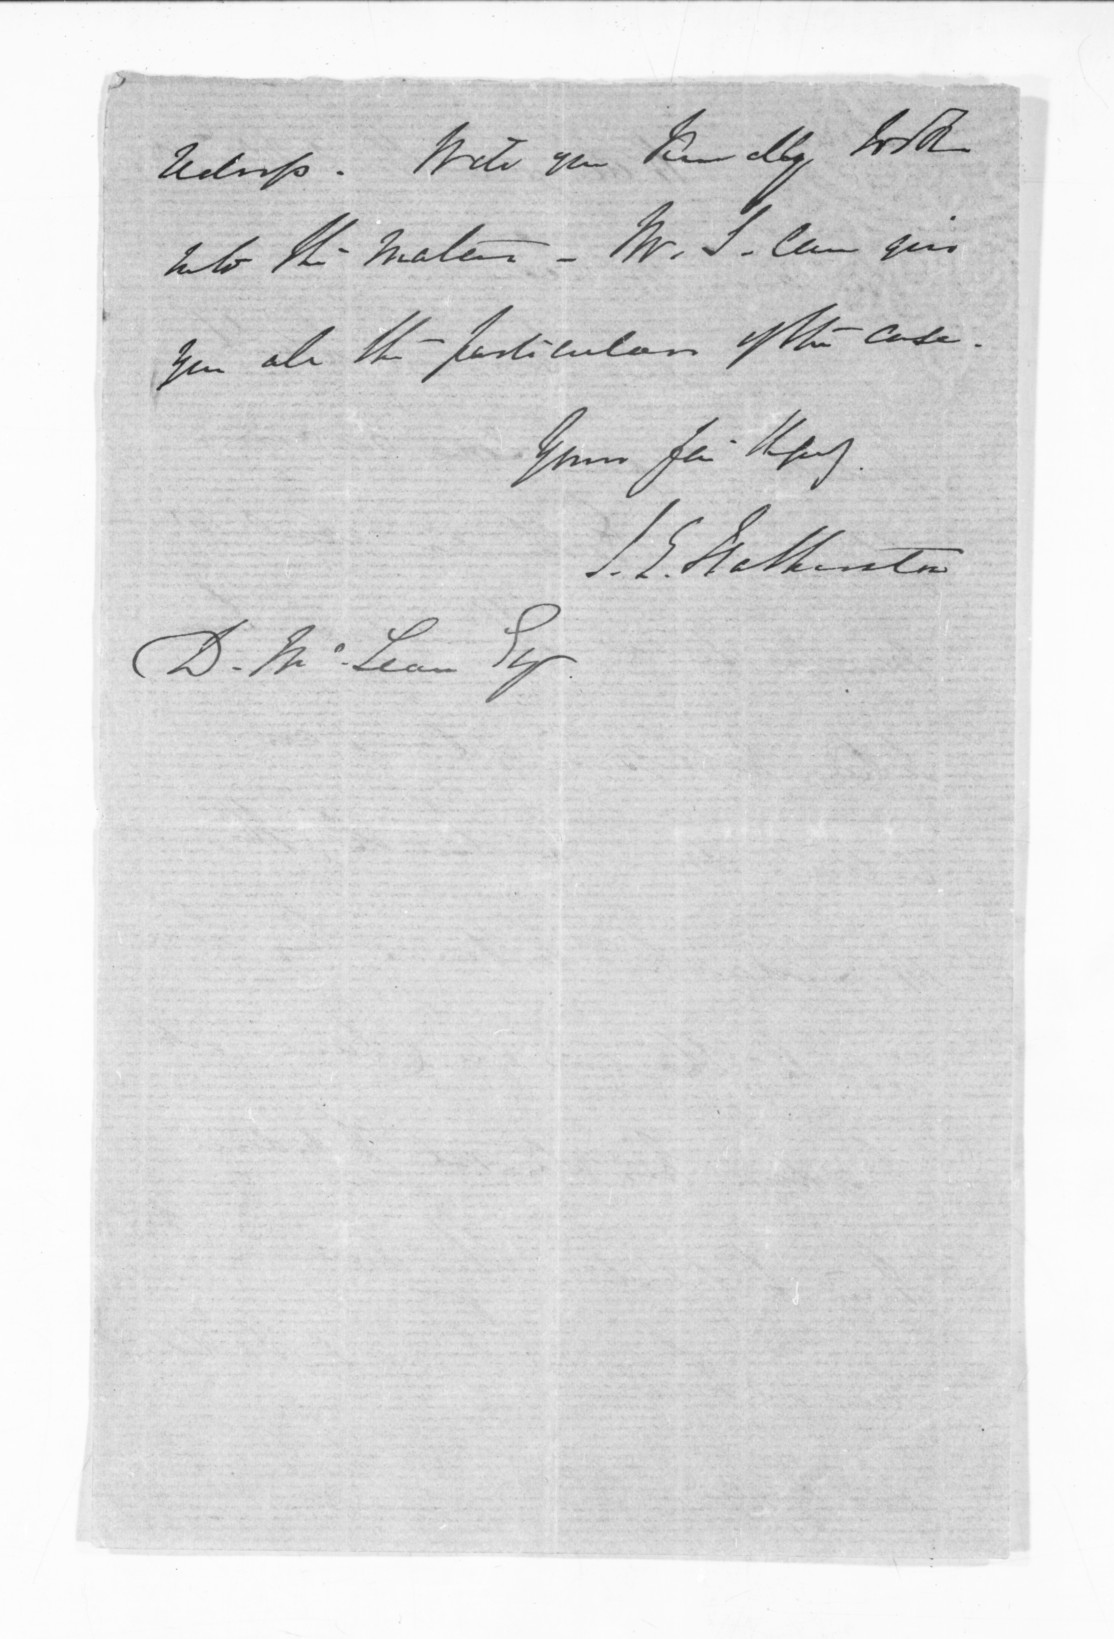 redress. Will you kindly look
into the matter - Mr. S. can give
you all the particulars of the case.
Yours faithfully.
I. E. Featherston
D. McLean Esq.